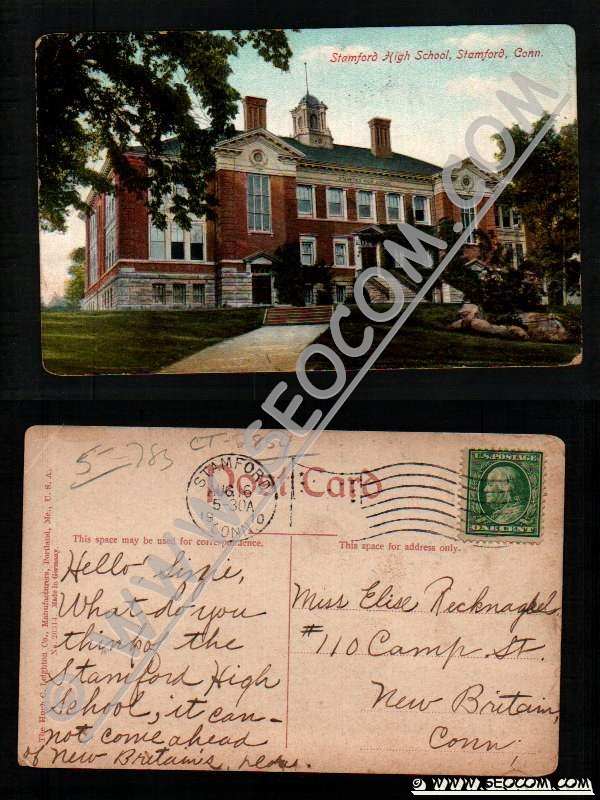 Stamford High School, Stamford, Conn.
© WWW.SEOCOM.COM
5-783
CT-2834
Post Card
STAMFORD
AUG 6
5-30A
1910
CONN.
U.S. POSTAGE
ONE CENT
This space may be used for correspondence.
This space for address only.
The Hugh C. Leighton Co., Manufacturers, Portland, Me., U. S. A.
Made in Germany.
Hello
What do you
think of the
Stamford High
School, it can-
not come ahead
of New Britain's,
Miss Elise Recknagel.
#110 Camp St.
New Britain,
Conn,
© WWW.SEOCOM.COM